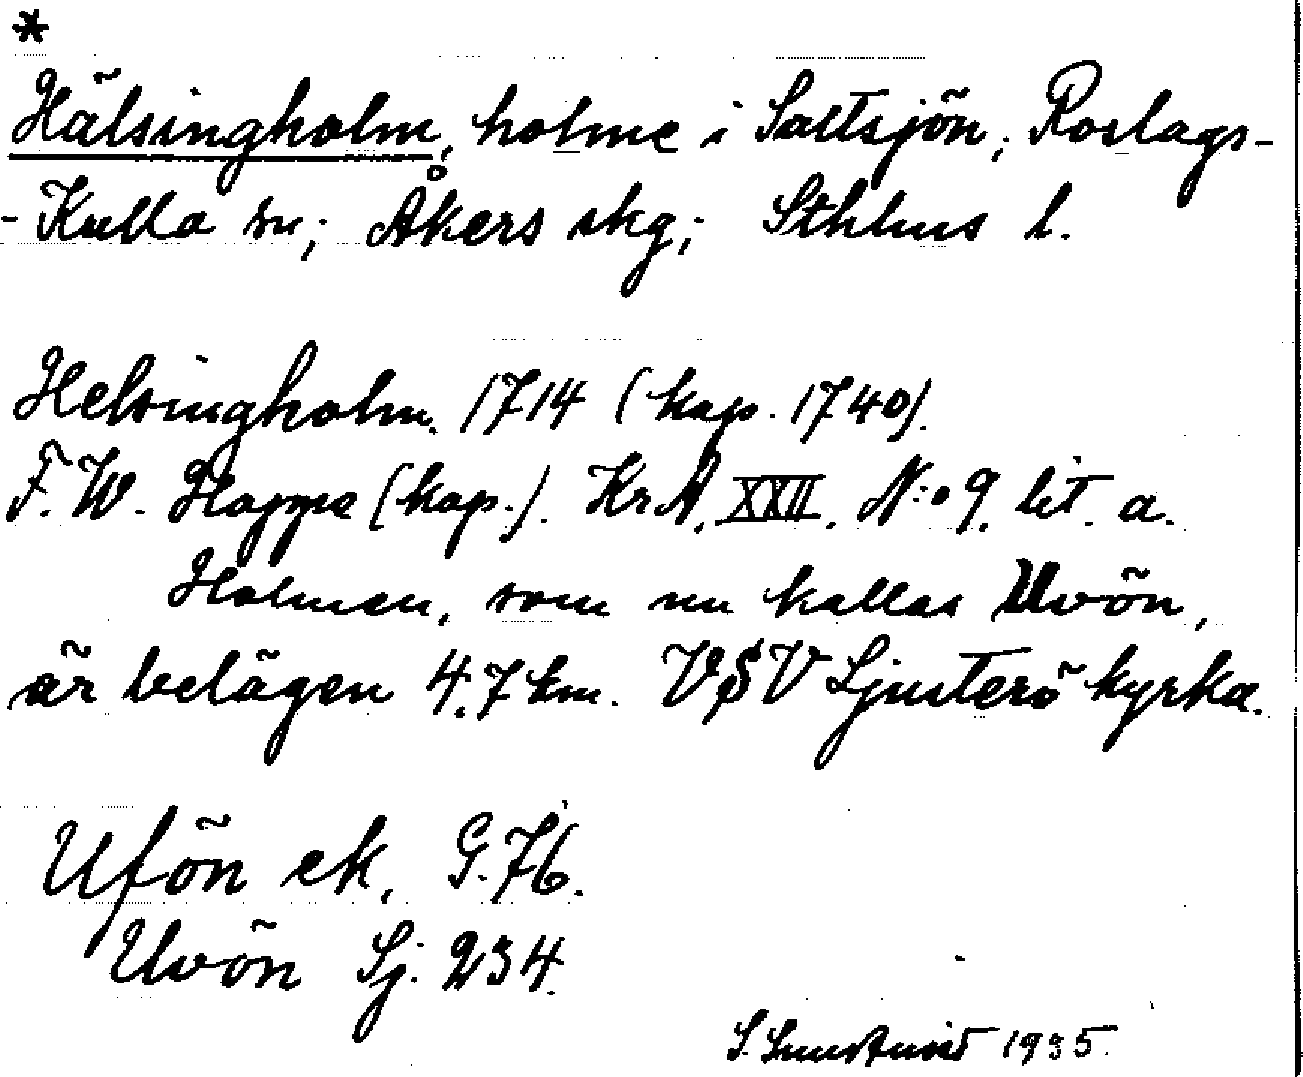 *
Hälsingholm, holme i Saltsjön; Roslags-
-Kulla sn; Åkers skg; Sthlms l.
Helsingholm. 1714 (kap. 1740).
F. W. Hoppe (kop.). KrA. XXII. N:o 9. lit. a.
Holmen, som nu kallas Uvön,
är belägen 4.7 km. VSV Ljusterö kyrka.
Ufön ek. G. 76.
Uvön Sj. 234.
S. 1935.